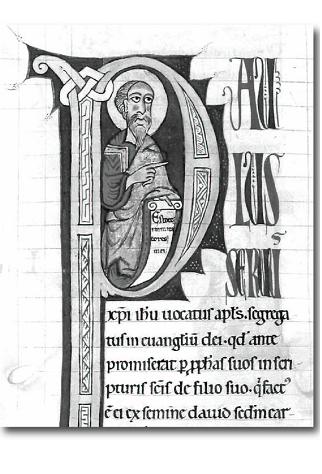 PAU
LUS
mei
xp̄i ih̄u uocatus ap̄ls. segrega
tus in euangliū dei. qd̄ ante
promiserat ꝑ ꝓphas suos in scri
pturis sc̄is de filio suo. q̄ factꝰ
ē ei ex semine dauid sedm̄ car